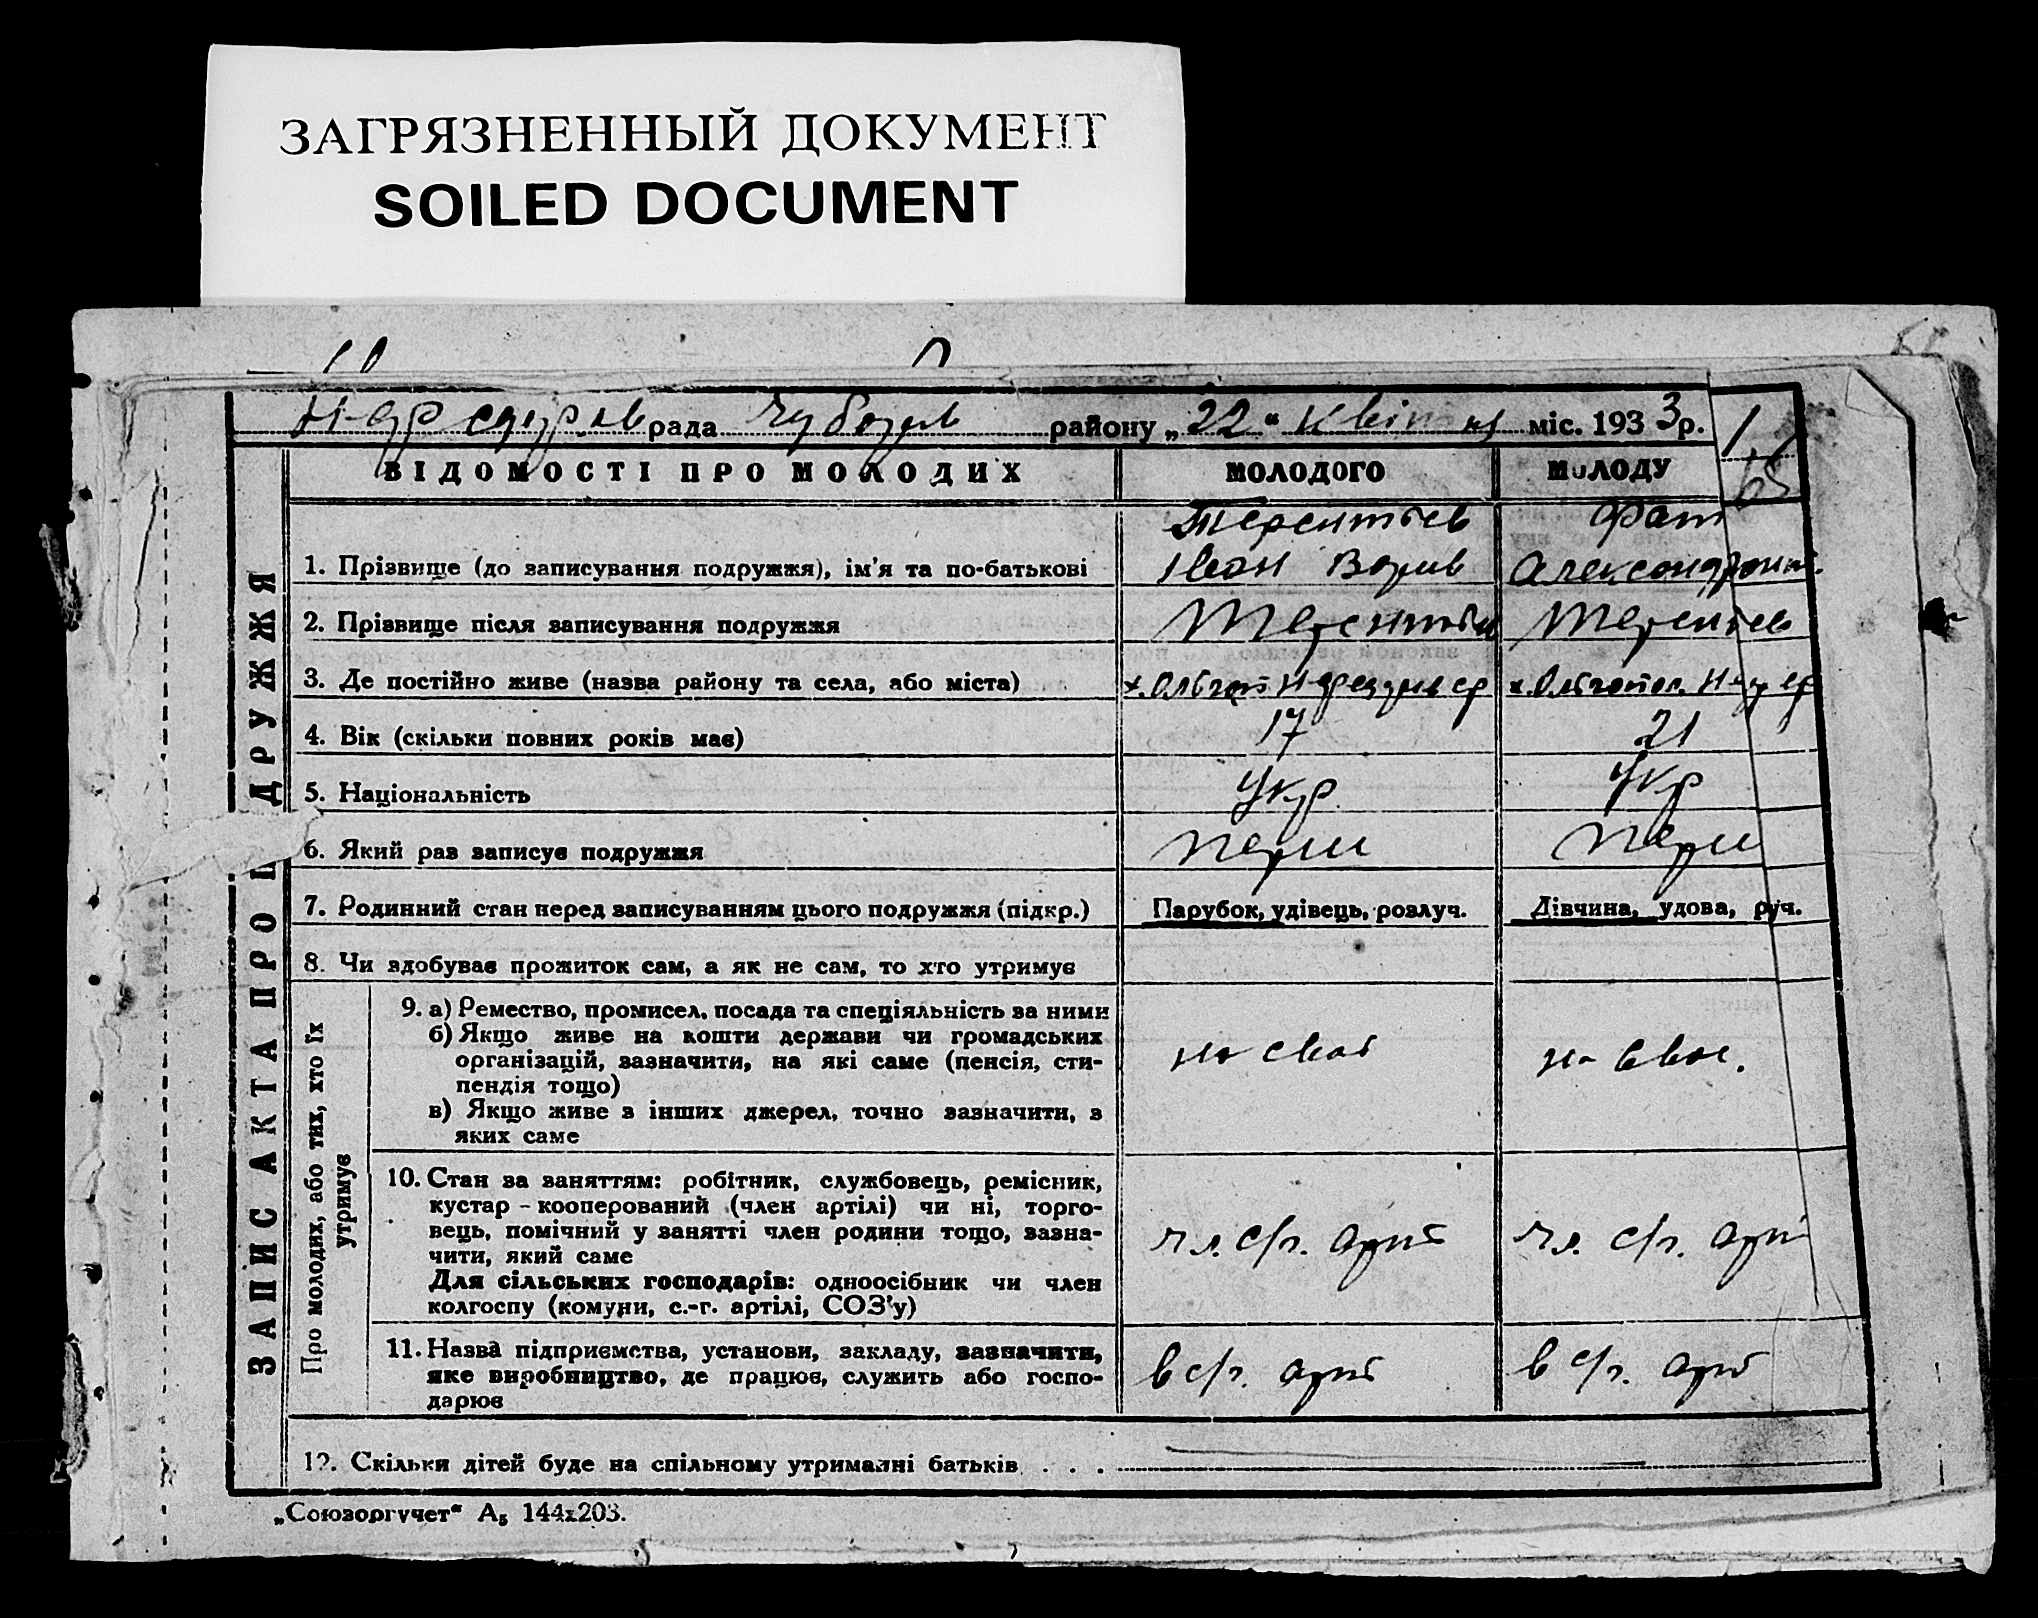 ЗАГРЯЗНЕННЫЙ ДОКУМЕНТ
SOILED DOCUMENT
рада району „22“ міс. 1933 р.
1
65
ВІДОМОСТІ ПРО МОЛОДИХ МОЛОДОГО МОЛОДУ
ЗАПИС АКТА ПРО ДРУЖЖЯ
1. Прізвище (до записування подружжя), ім'я та по-батькові Терентьев Іван
2. Прізвище після записування подружжя
3. Де постійно живе (назва району та села, або міста)
4. Вік (скільки повних років має) 17 21
5. Національність Укр Укр
6. Який раз записує подружжя перш перш
7. Родинний стан перед записуванням цього подружжя (підкр.) Парубок, удівець, розлуч. Дівчина, удова, руч.
8. Чи здобуває прожиток сам, а як не сам, то хто утримує
Про молодих, або тих, хто їх утримує
9. а) Ремество, промисел, посада та спеціяльність за ними
б) Якщо живе на кошти держави чи громадських
організацій, зазначити, на які саме (пенсія, сти-
пендія тощо)
в) Якщо живе з інших джерел, точно зазначити, з
яких саме
10. Стан за заняттям: робітник, службовець, ремісник,
кустар - кооперований (член артілі) чи ні, торго-
вець, помічний у занятті член родини тощо, зазна-
чити, який саме
Для сільських господарів: одноосібник чи член
колгоспу (комуни, с.-г. артілі, СОЗ'у)
чл. с/г. арт чл. с/г. арт
11. Назва підприємства, установи, закладу, зазначити,
яке виробництво, де працює, служить або госпо-
дарює
в с/г. арт в с/г. арт
12. Скільки дітей буде на спільному утриманні батьків . . .
„Союзоргучет“ А₅ 144x203.